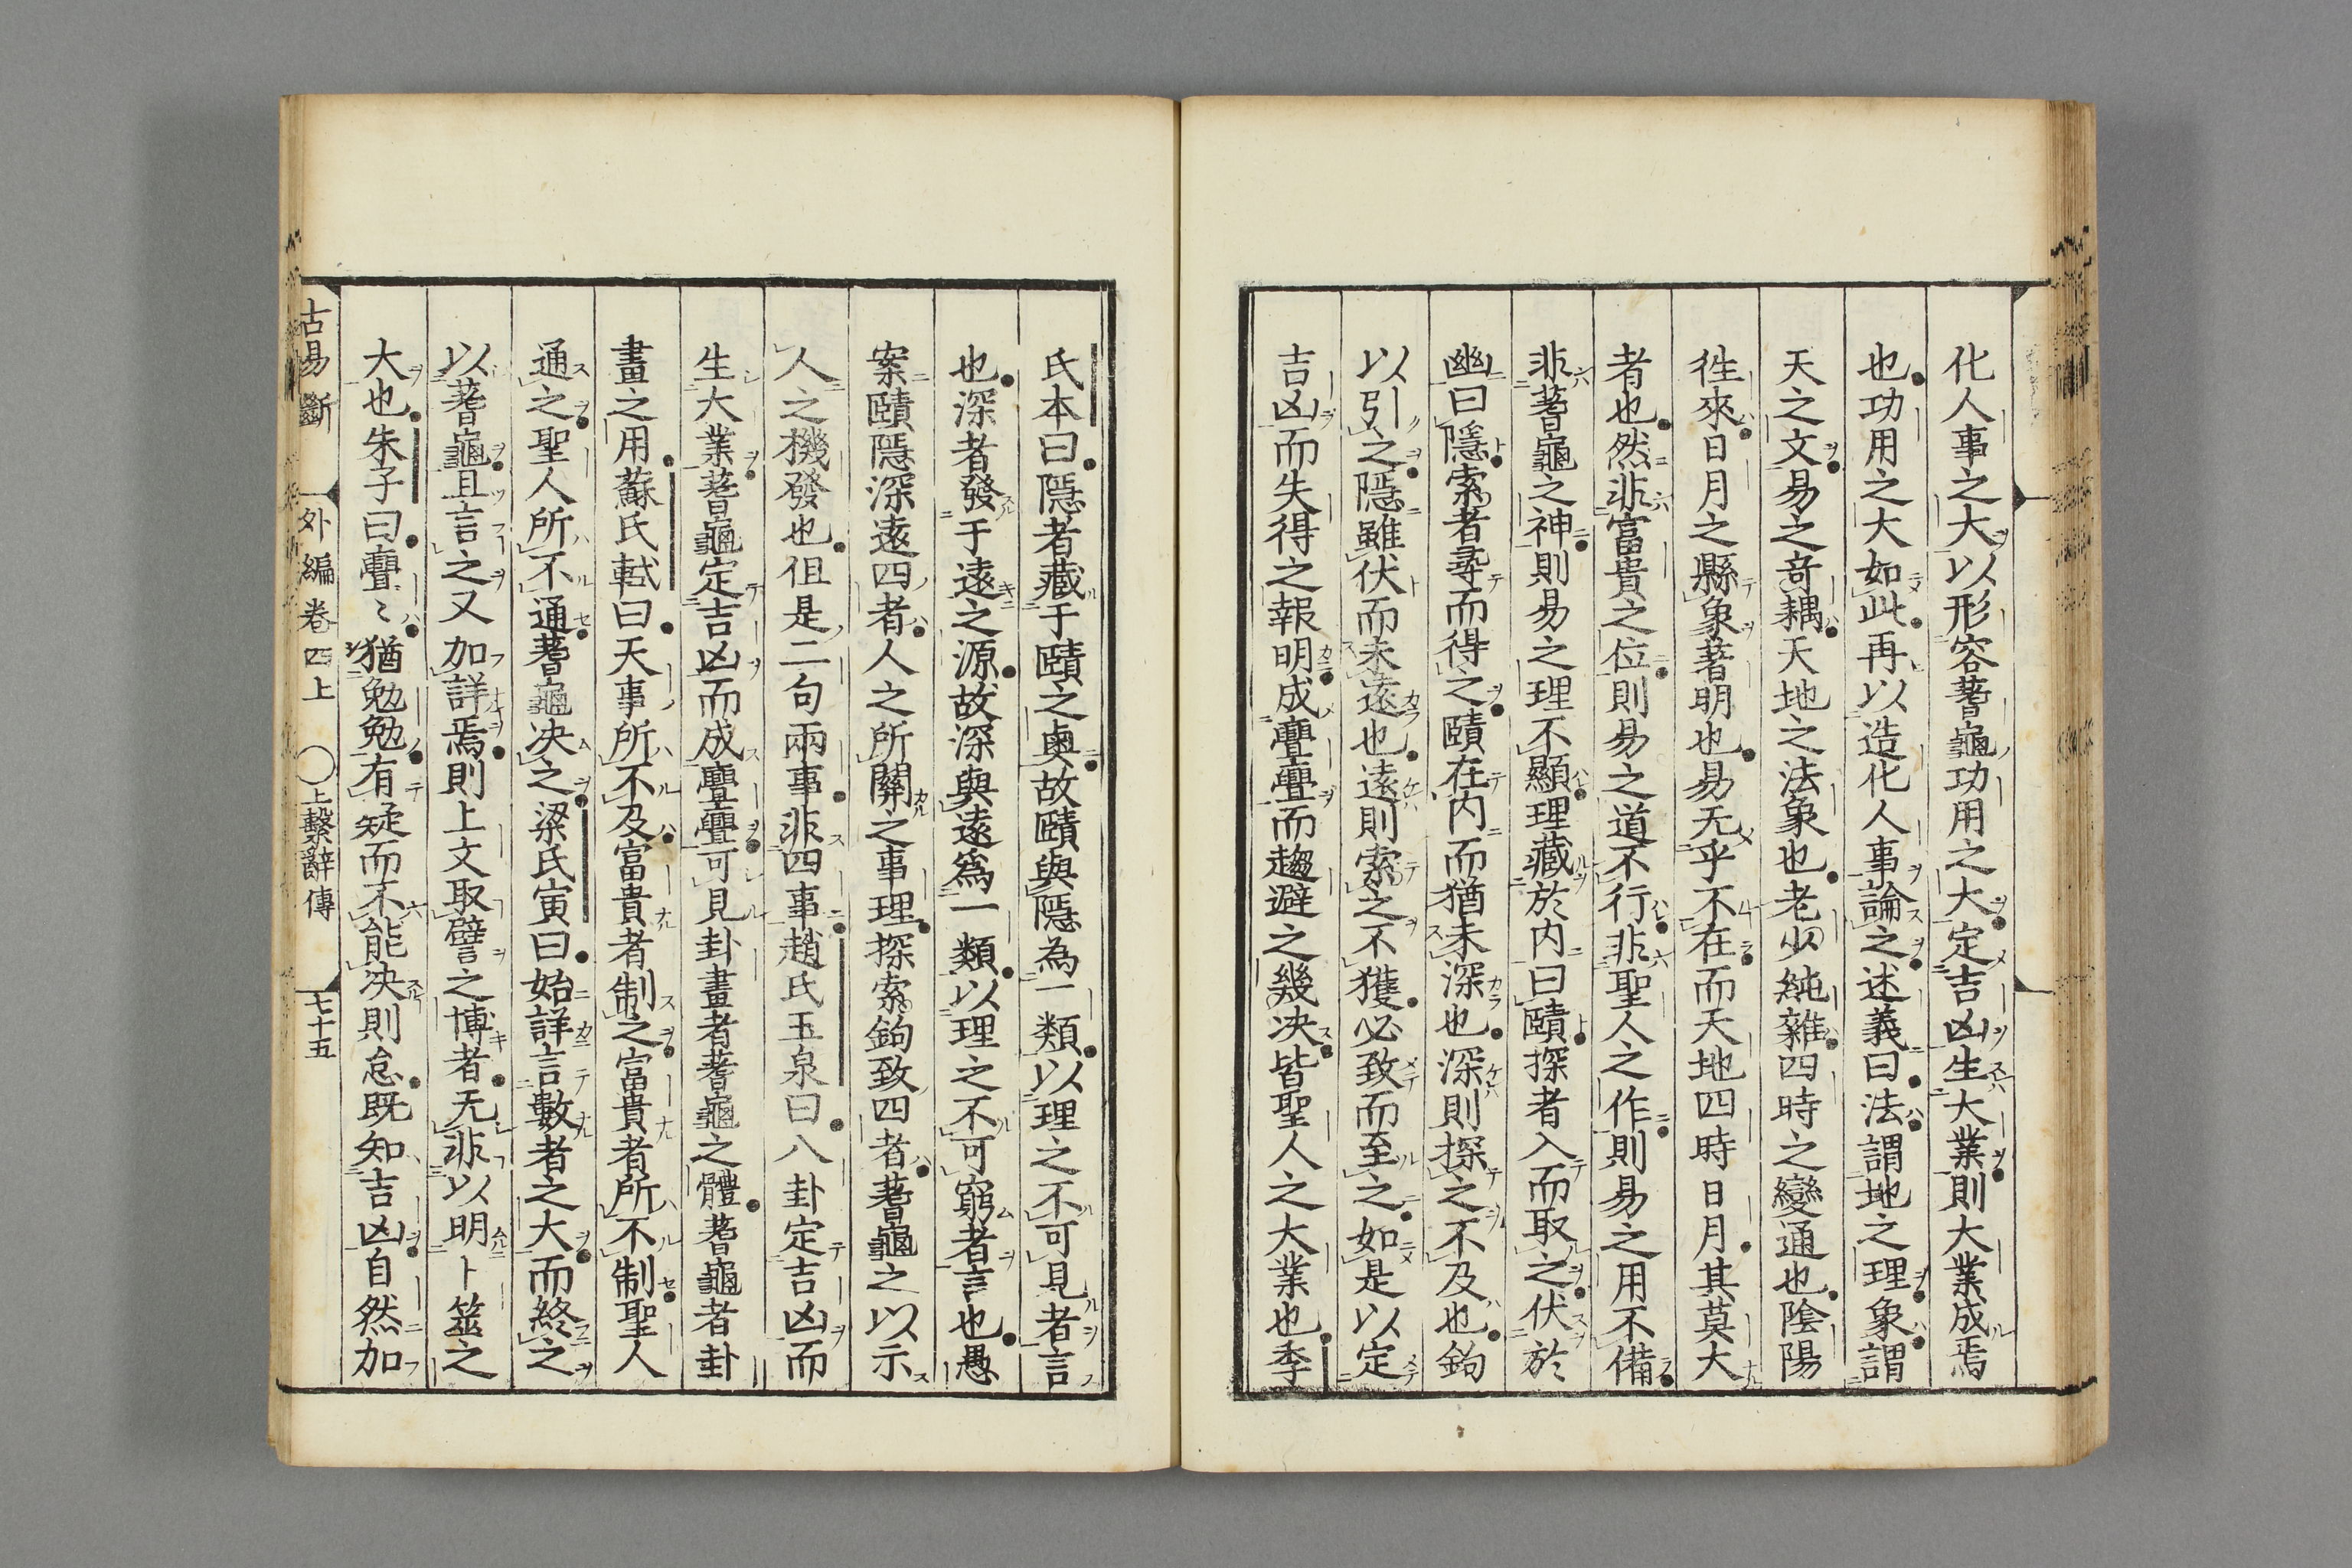 化人事之大以形容蓍龜功用之大定吉凶生大業則大業成焉
也功用之大如此再以造化人事論之述義曰法謂地之理象謂
天之文易之奇耦天地之法象也老少純雜四時之變通也陰陽
徃來日月之縣象著明也易无乎不在而天地四時日月其莫大
者也然非富貴之位則易之道不行非聖人之作則易之用不備
非蓍龜之神則易之理不顯理藏於內曰賾探者入而取之伏於
幽曰隱索者尋而得之賾在内而猶未深也深則探之不及也鉤
以引之隱雖伏而未遠也遠則索之不獲必致而至之如是以定
吉凶而失得之報明成亹亹而趨避之幾决皆聖人之大業也季
氏本曰隱者藏于賾之奥故賾與隱為一類以理之不可見者言
也深者發于遠之源故深與遠爲一類以理之不可窮者言也愚
案賾隱深遠四者人之所關之事理探索鉤致四者蓍龜之以示
人之機發也但是二句兩事非四事趙氏玉泉曰八卦定吉凶而
生大業蓍龜定吉凶而成亹亹可見卦畫者蓍龜之體蓍龜者卦
畫之用蘇氏軾曰天事所不及富貴者制之富貴者所不制聖人
通之聖人所不通蓍龜决之梁氏寅曰始詳言數者之大而終之
以蓍龜且言之又加詳焉則上文取譬之博者无非以明卜筮之
大也朱子曰亹〻猶勉勉有疑而不能决則怠既知吉凶自然加
古易斷　外編卷四上　〇上繫辭傳　七十五